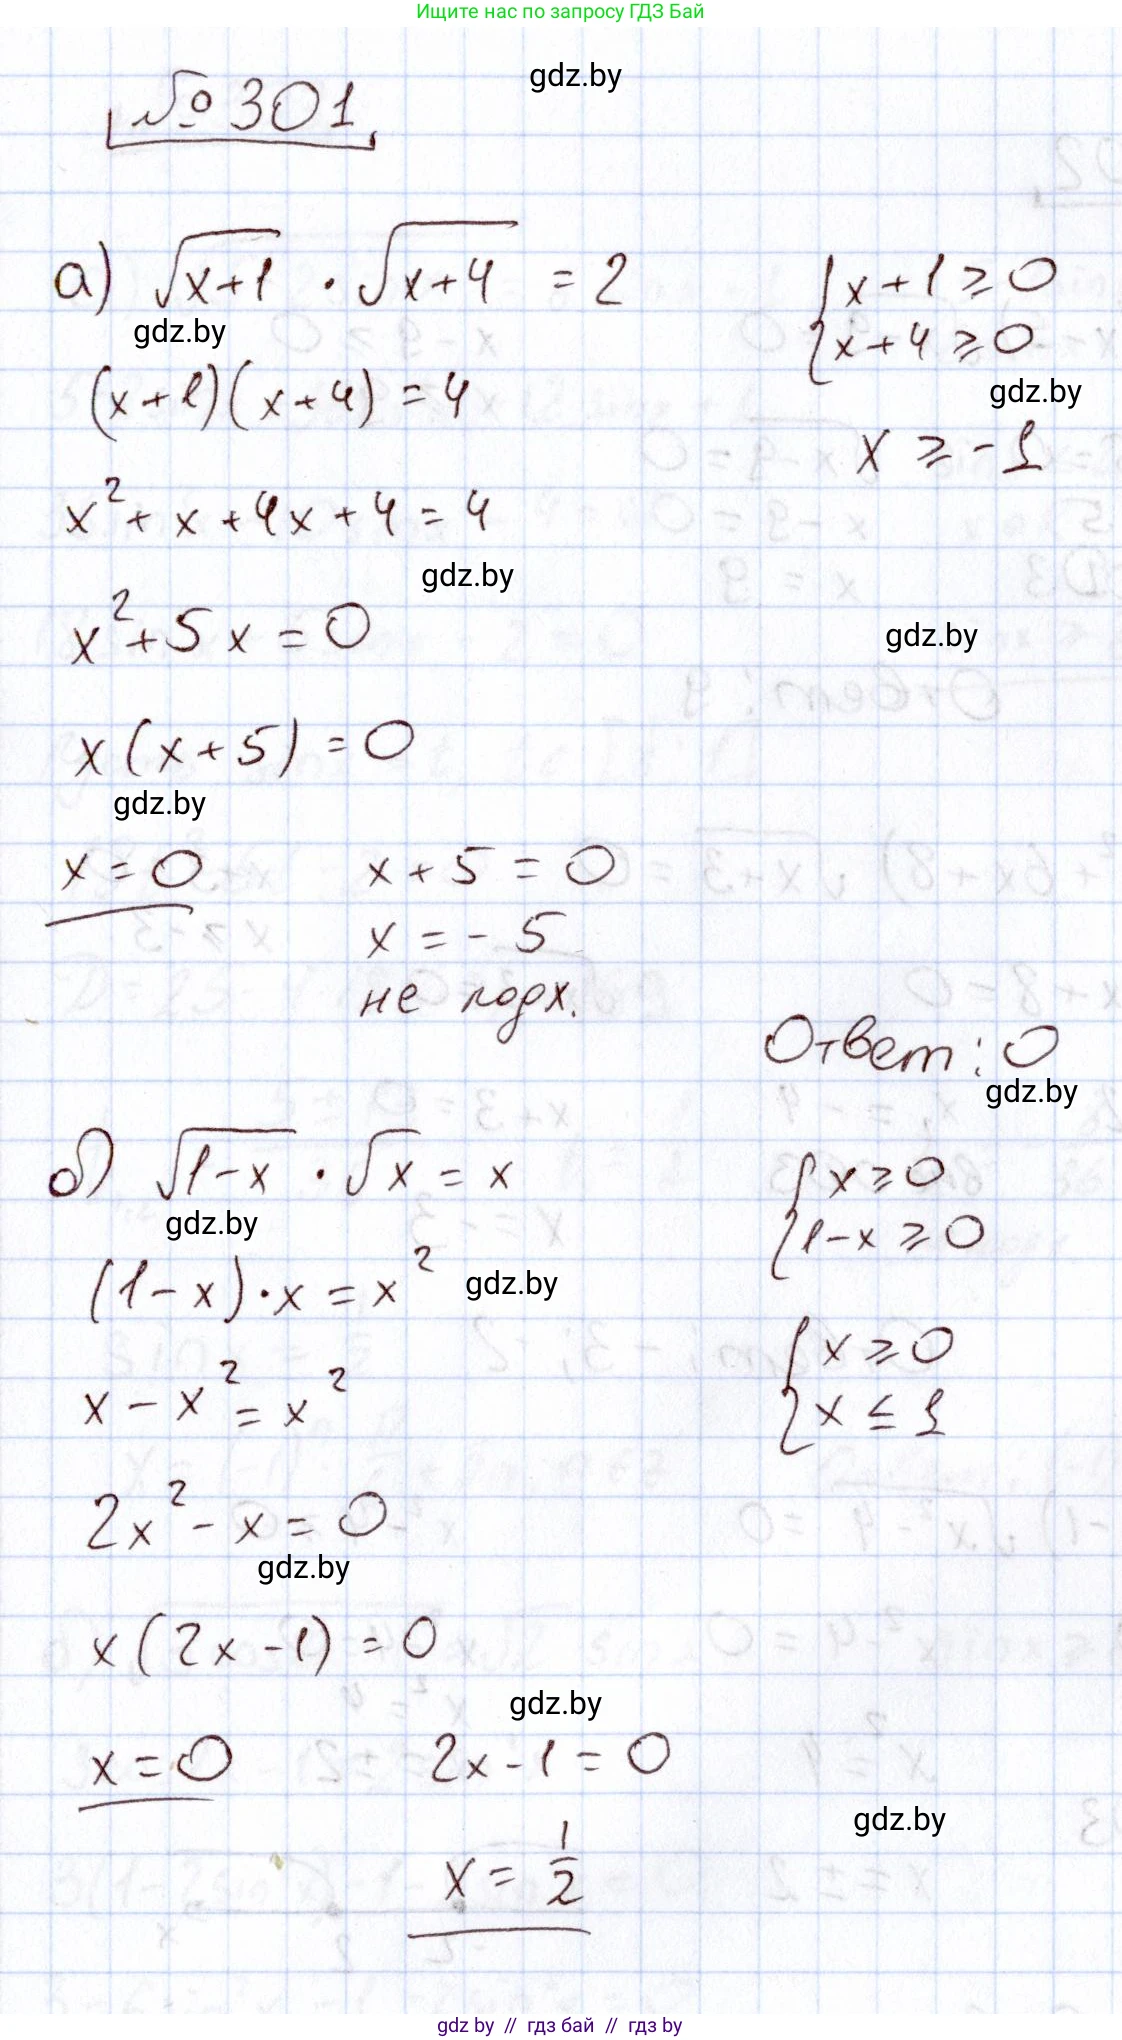 Ищите нас по запросу ГДЗ Бай
gdz.by
№ 301
а) √(x+1) · √(x+4) = 2
{ x+1 ≥ 0
{ x+4 ≥ 0
gdz.by
gdz.by
(x+1)(x+4) = 4
x ≥ -1
x² + x + 4x + 4 = 4
gdz.by
x² + 5x = 0
gdz.by
x(x+5) = 0
gdz.by
x = 0 x + 5 = 0
x = -5
не подх.
Ответ: 0
gdz.by
б) √(1-x) · √x = x
{ x ≥ 0
{ 1-x ≥ 0
gdz.by
(1-x)·x = x²
gdz.by
{ x ≥ 0
{ x ≤ 1
x - x² = x²
2x² - x = 0
gdz.by
x(2x-1) = 0
gdz.by
x = 0 2x-1 = 0
gdz.by
x = 1/2
gdz by // гдз бай // гдз by